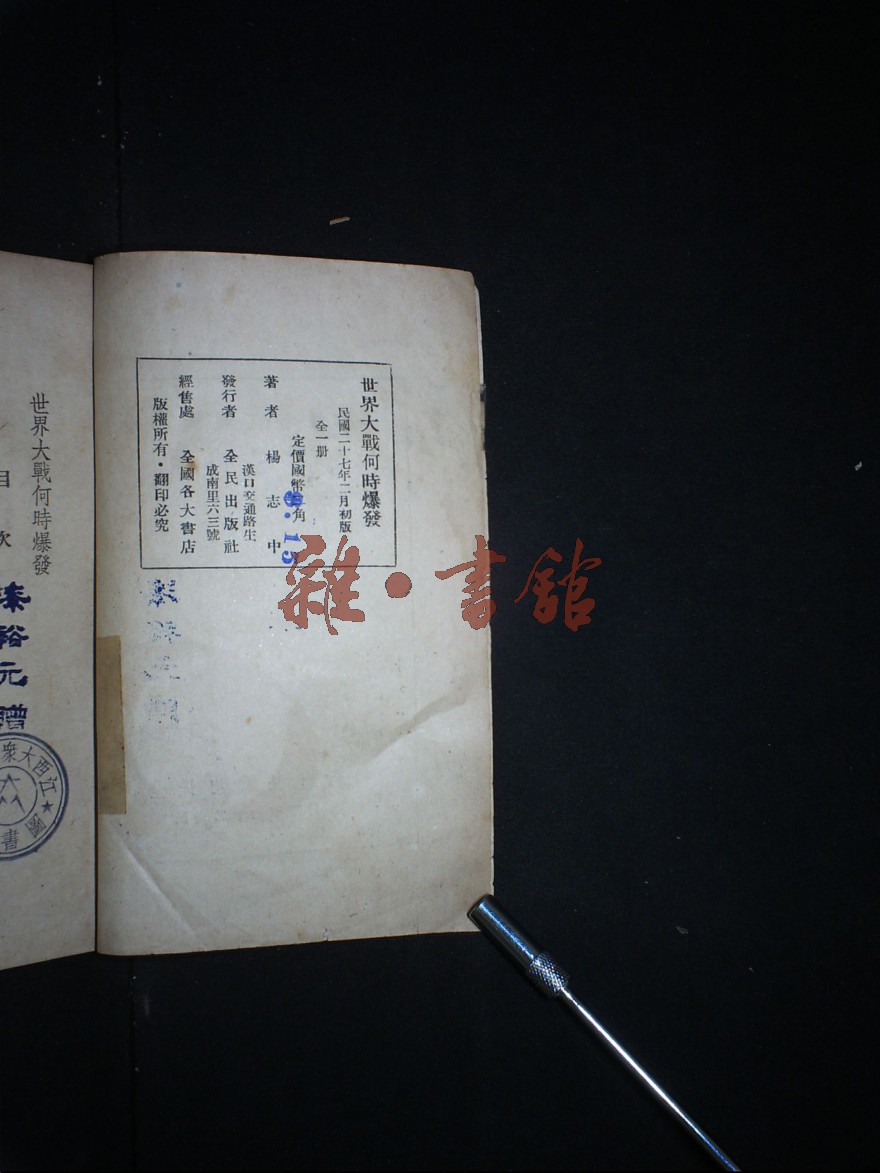 世界大戰何時爆發
民國二十七年二月初版
全一册
定價國幣 角
0.15
著者 楊志中
漢口交通路生
成南里六三號
發行者 全民出版社
經售處 全國各大書店
版權所有・翻印必究
世界大戰何時爆發
目 次
裕元贈
江西大衆
圖書
雜・書館